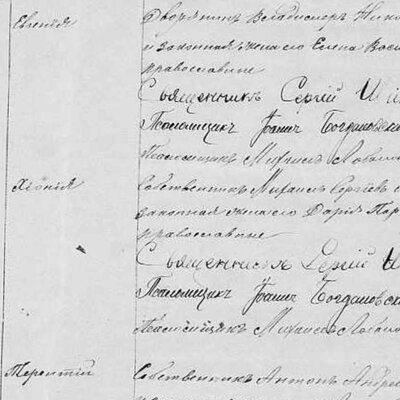 Евгенія
Дворянинъ Владиміръ Нико
и законная жена его Елена Васи
православные
Священникъ Сергій
Псаломщикъ Іоаннъ Богдановск
Псаломщикъ Михаилъ
Хіонія
Собственникъ Михаилъ Сергѣевъ
законная жена его Дарія Пар
православные
Священникъ Сергій
Псаломщикъ Іоаннъ Богдановск
Псаломщикъ Михаилъ
Терентій
Собственникъ Антонъ Андре